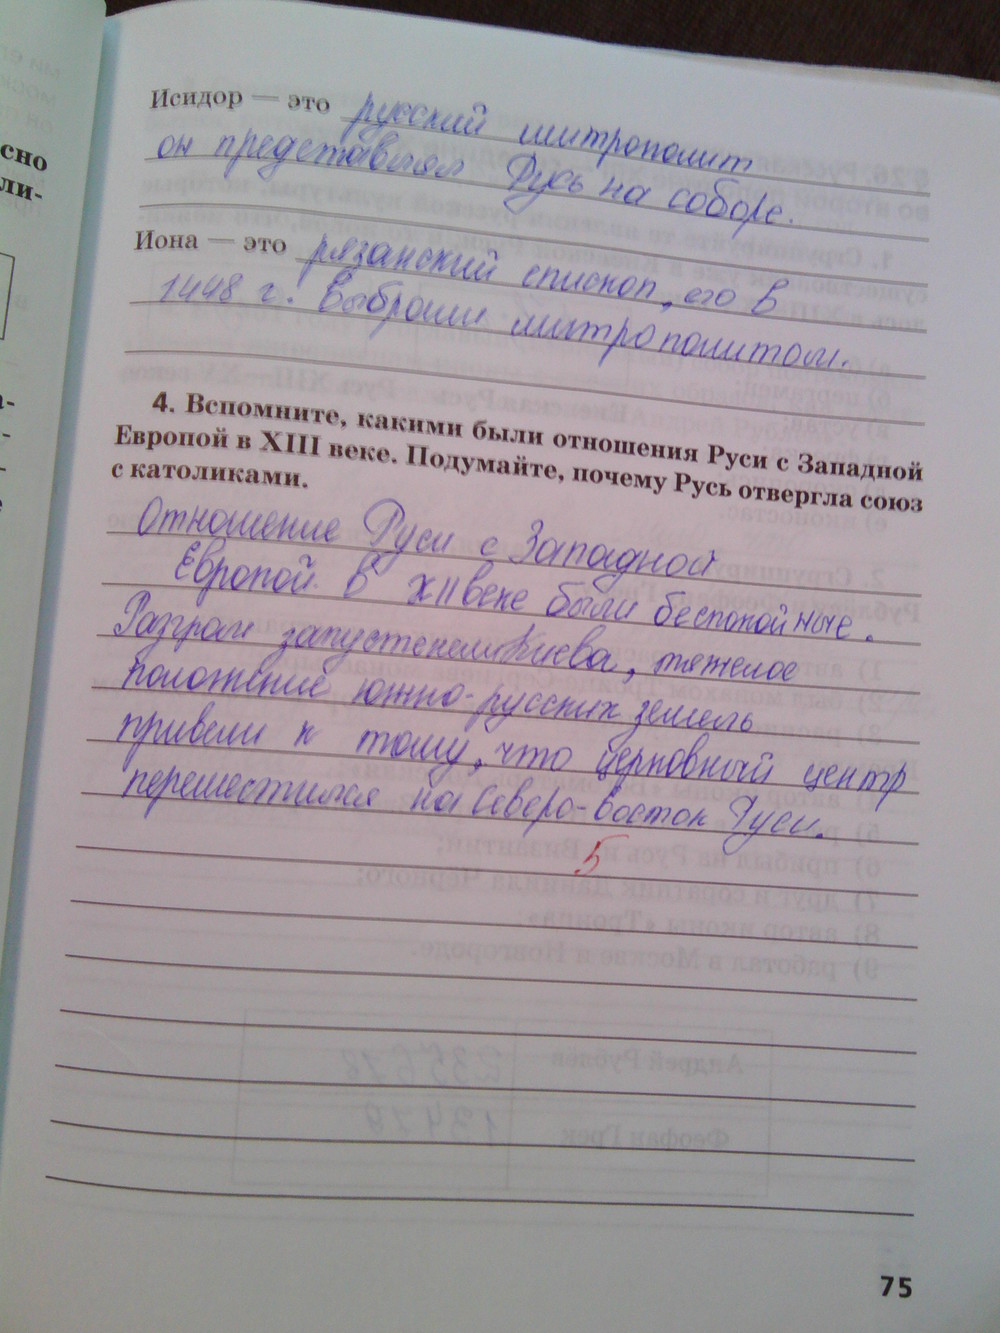 сно
ли-
Исидор — это русский митрополит
он представлял Русь на соборе.
Иона — это рязанский епископ, его в
1448 г. выбрали митрополитом.
4. Вспомните, какими были отношения Руси с Западной
Европой в XIII веке. Подумайте, почему Русь отвергла союз
с католиками.
Отношение Руси с Западной
Европой в XII веке были беспокойные.
Разгром запустении Киева, тяжелое
положение южно-русских земель
привели к тому, что церковный центр
переместился на Северо-восток Руси.
5
75